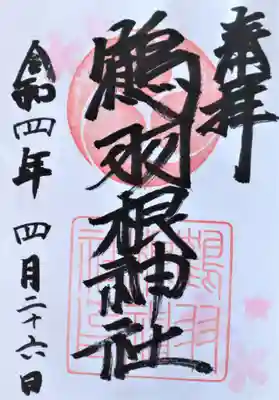 奉拝
鶴羽根神社
令和四年 四月二十六日